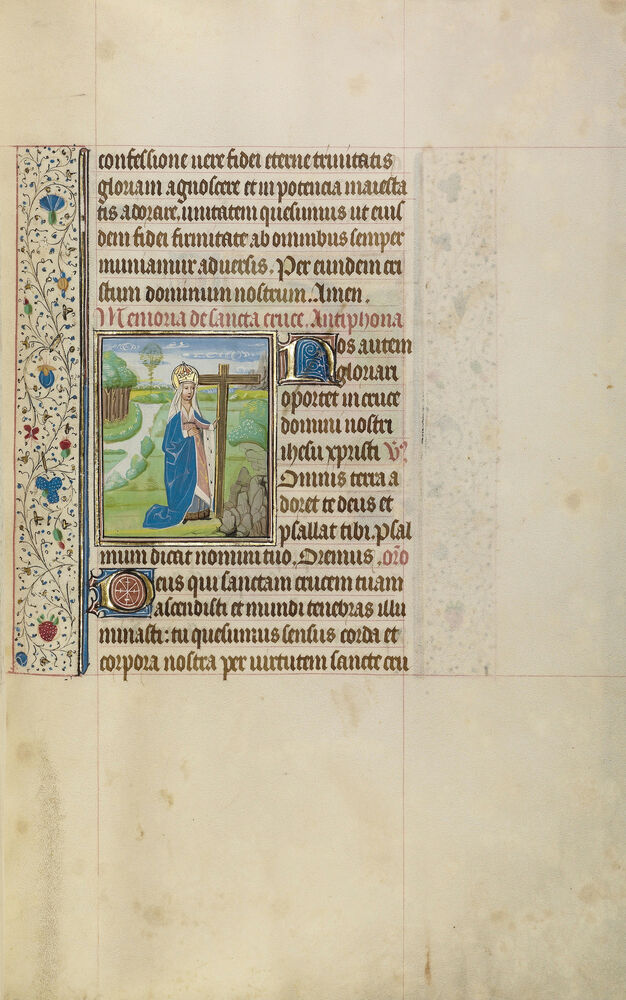 confessione uere fidei eterne trinitatis
gloriam agnoscere et in potencia maiesta
tis adorare, unitatem quesumus ut eius
dem fidei firmitate ab omnibus semper
muniamur aduersis. Per eundem cri
stum dominum nostrum. Amen.
Memoria de sancta cruce. Antiphona
Nos autem
gloriari
oportet in cruce
domini nostri
ihesu xpristi V͛.
Omnis terra a
doret te deus et
psallat tibi. Psal
mum dicat nomini tuo. Oremus. or̅o
Deus qui sanctam crucem tuam
ascendisti et mundi tenebras illu
minasti: tu quesumus sensus corda et
corpora nostra per uirtutem sancte cru